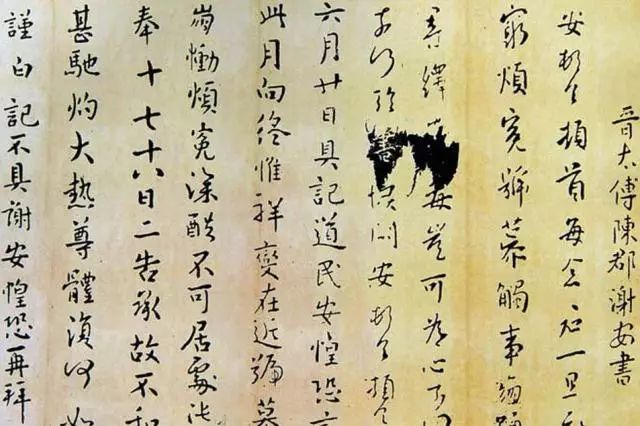 晉太傅陳郡謝安書
安頓首頓首每念
窮煩冤號慕觸事
尋繹 毒豈可為心
書 惘惘安頓首頓首
六月廿日具記道民安惶恐言
此月向終惟祥變在近號慕
崩慟煩冤深酷不可居處
奉十七十八日二告承故不和
甚馳灼大熱尊體復何如
謹白記不具謝安惶恐再拜